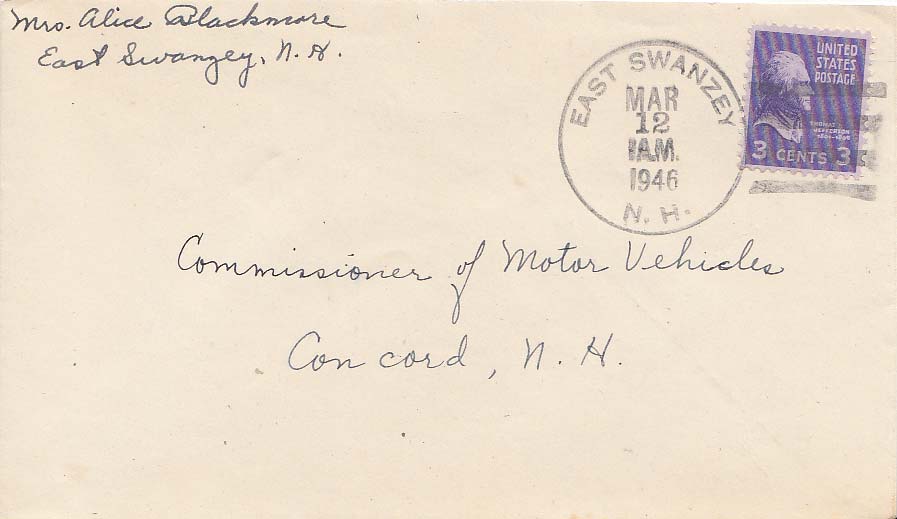 Mrs. Alice Blackmore
East Swanzey, N. H.
EAST SWANZEY
MAR
12
A.M.
1946
N. H.
UNITED
STATES
POSTAGE
THOMAS
JEFFERSON
3 CENTS 3
Commissioner of Motor Vehicles
Concord, N. H.